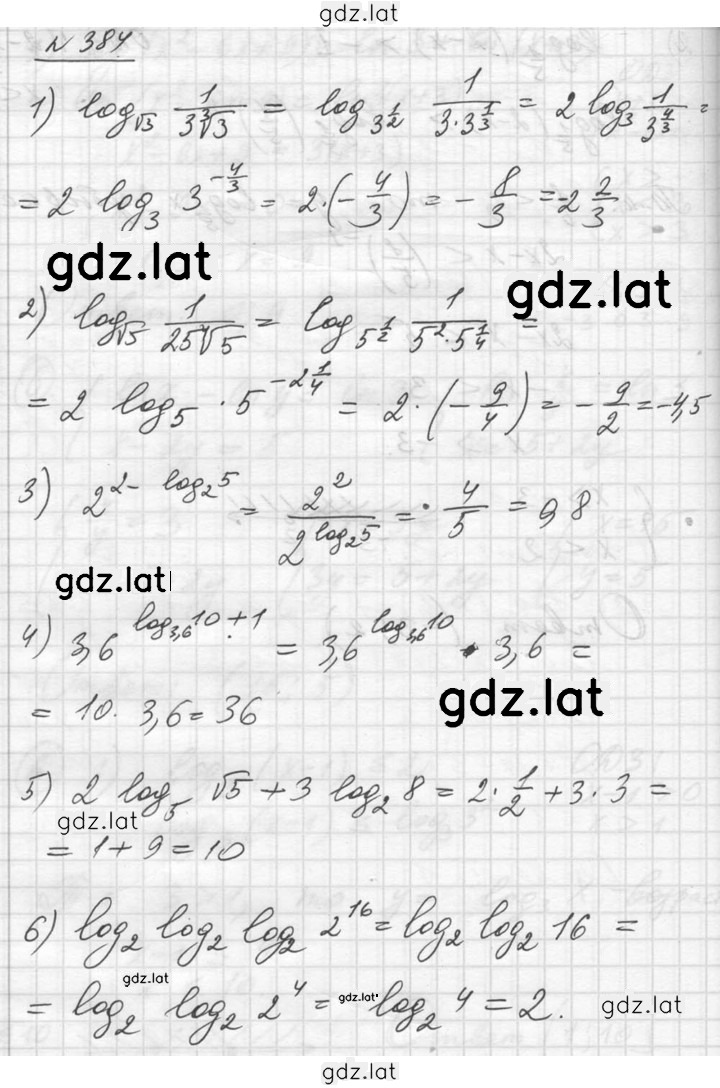 gdz.lat
N 384
1) log_√3 1/(3∛3) = log_3^(1/2) 1/(3·3^(1/3)) = 2 log_3 1/3^(4/3) =
= 2 log_3 3^(-4/3) = 2·(-4/3) = -8/3 = -2 2/3
gdz.lat
gdz.lat
2) log_√5 1/(25∜5) = log_5^(1/2) 1/(5^2·5^(1/4)) =
= 2 log_5 · 5^(-2 1/4) = 2·(-9/4) = -9/2 = -4,5
3) 2^(2-log_2 5) = 2^2/2^(log_2 5) = · 4/5 = 0,8
gdz.lat
4) 3,6^(log_3,6 10+1) = 3,6^(log_3,6 10) · 3,6 =
= 10. 3,6 = 36
gdz.lat
5) 2 log_5 √5 + 3 log_2 8 = 2·1/2 + 3·3 =
gdz.lat
= 1+9 = 10
6) log_2 log_2 log_2 2^16 = log_2 log_2 16 =
gdz.lat
= log_2 log_2 2^4 = log_2 4 = 2.
gdz.lat
gdz.lat
gdz.lat